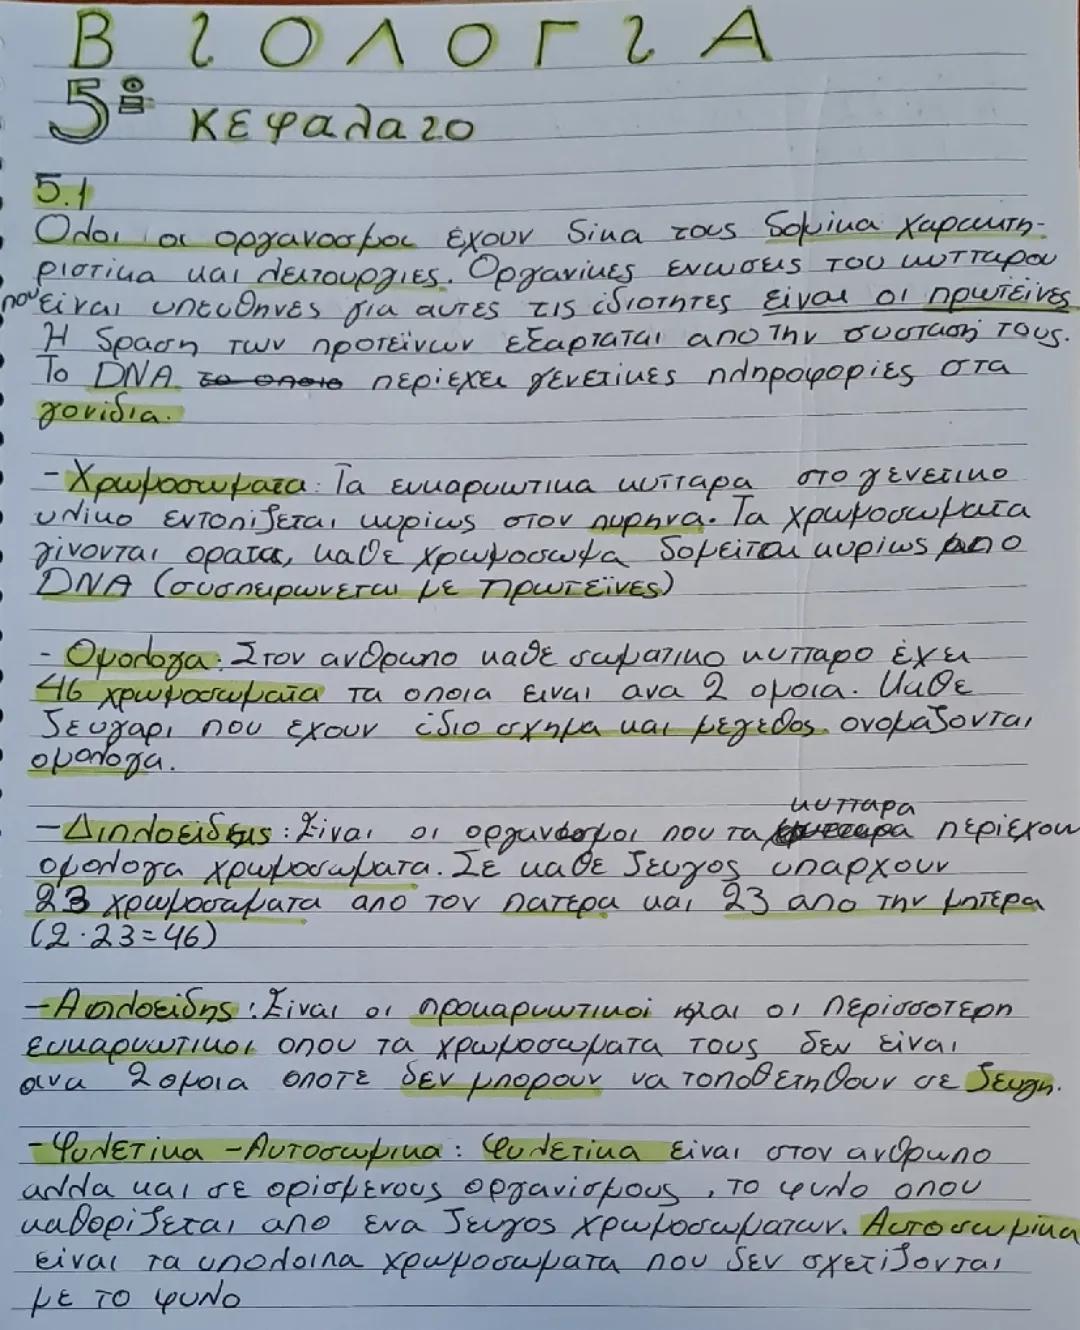 ΒΙΟΛΟΓΙΑ
5ο κεφαλαιο
5.1
Ολοι οι οργανισμοι έχουν δικα τους δομικα χαρακτη-
ριστικα και λειτουργιες. Οργανικες ενωσεις του κυτταρου
που είναι υπευθηνες για αυτες τις ιδιοτητες είναι οι πρωτεϊνες
Η δραση των προτεϊνων εξαρταται απο την συσταση τους.
Το DNA το οποιο περιεχει γενετικες πληροφορίες στα
γονιδια.
- Χρωμοσωματα: Τα ευκαρυωτικα κυτταρα στο γενετικο
υλικο εντοπιζεται κυρίως στον πυρηνα. Τα χρωμοσωματα
γίνονται ορατα, καθε χρωμοσωμα δομείται κυρίως απο
DNA (συσπειρωνεται με πρωτεϊνες)
- Ομολογα: Στον ανθρωπο καθε σωματικο κυτταρο έχει
46 χρωμοσωματα τα οποια ειναι ανα 2 ομοια. Καθε
ζευγαρι που εχουν ίδιο σχημα και μεγεθος ονομαζονται
ομολογα.
- Διπλοειδεις: Είναι οι οργανισμοι που τα κυτταρα περιέχουν
ομολογα χρωμοσωματα. Σε καθε ζευγος υπαρχουν
23 χρωμοσωματα απο τον πατερα και 23 απο την μητερα
(2·23=46)
- Απλοειδης: Είναι οι προκαρυωτικοί και οι περισσοτερη
ευκαρυωτικοι οπου τα χρωμοσωματα τους δεν είναι
ανα 2 ομοια οποτε δεν μπορουν να τοποθετηθουν σε ζευγη.
- Φυλετικα - Αυτοσωμικα: Φυλετικα είναι στον ανθρωπο
αλλα και σε ορισμενους οργανισμους, το φυλο οπου
καθοριζεται απο ενα ζευγος χρωμοσωματων. Αυτοσωμικα
είναι τα υπολοιπα χρωμοσωματα που δεν σχετιζονται
με το φυλο